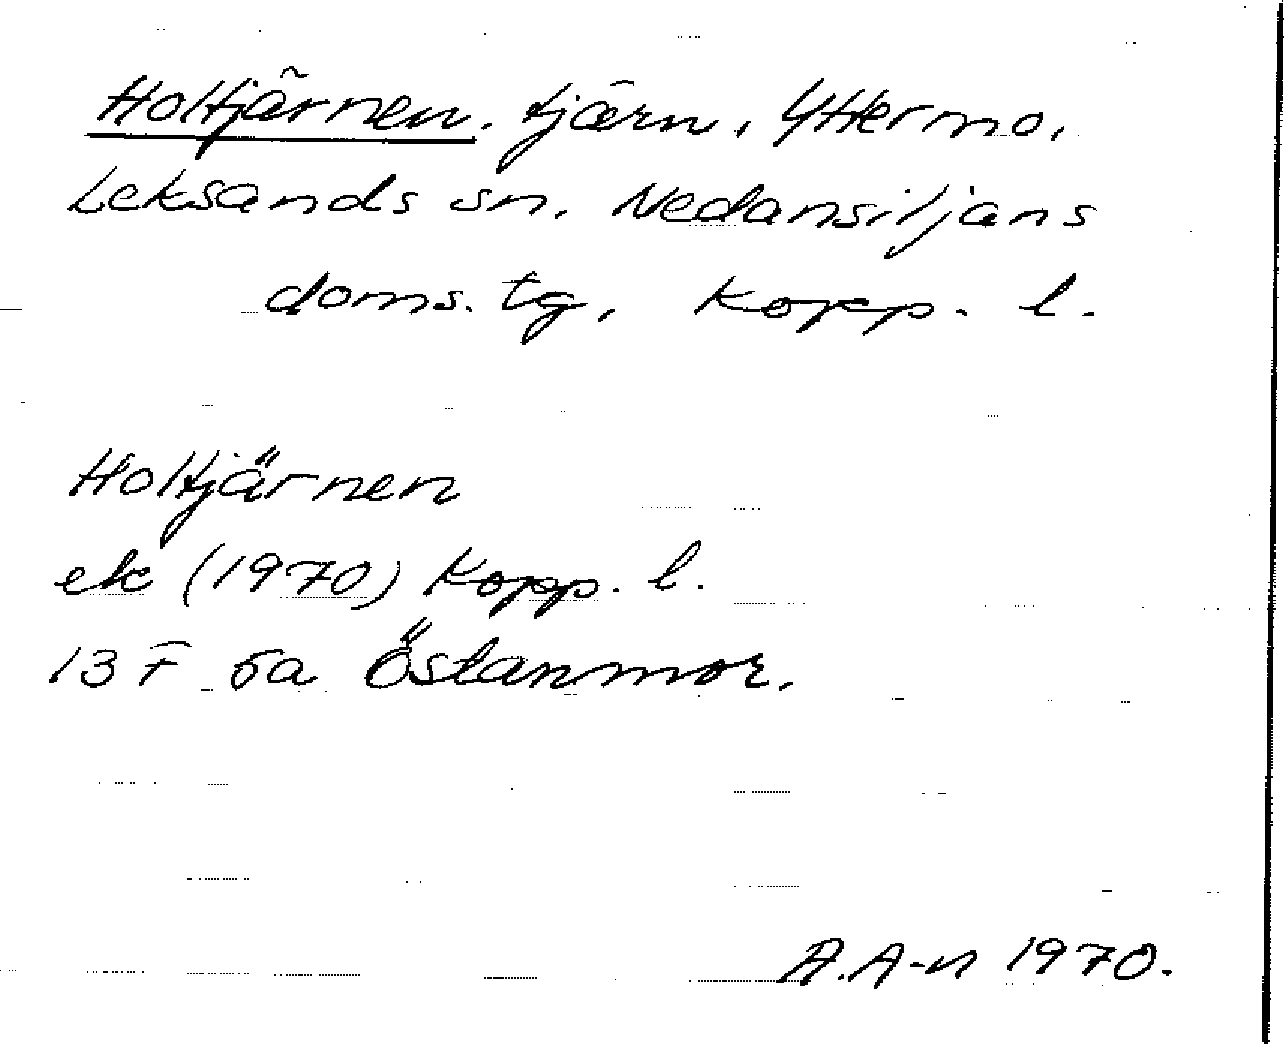 Holtjärnen. tjärn, Yttermo,
Leksands sn. Nedansiljans
doms. tg, Kopp. l.
Holtjärnen
ek (1970) Kopp. l.
13 F 5a Östanmor.
A.A-n 1970.